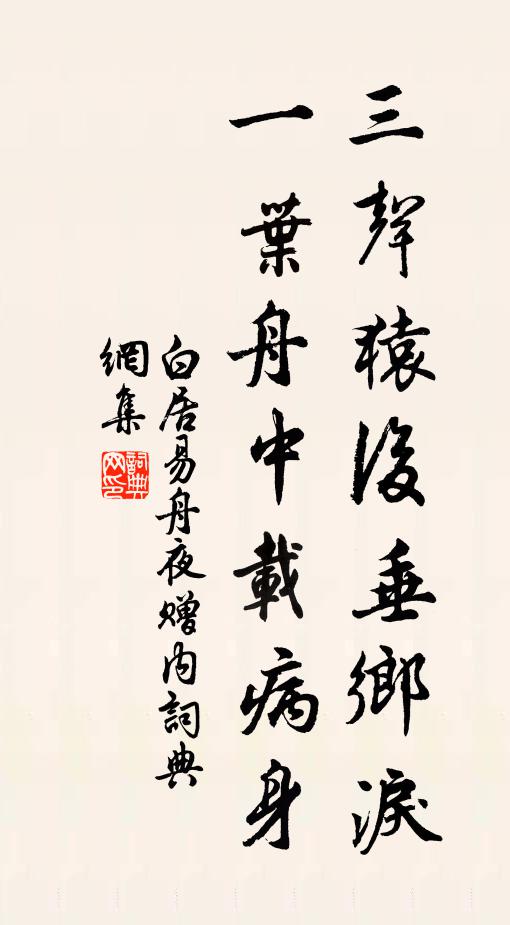 三聲猿後垂鄉淚
一葉舟中載病身
白居易舟夜贈内詞典
網集
詞典網印